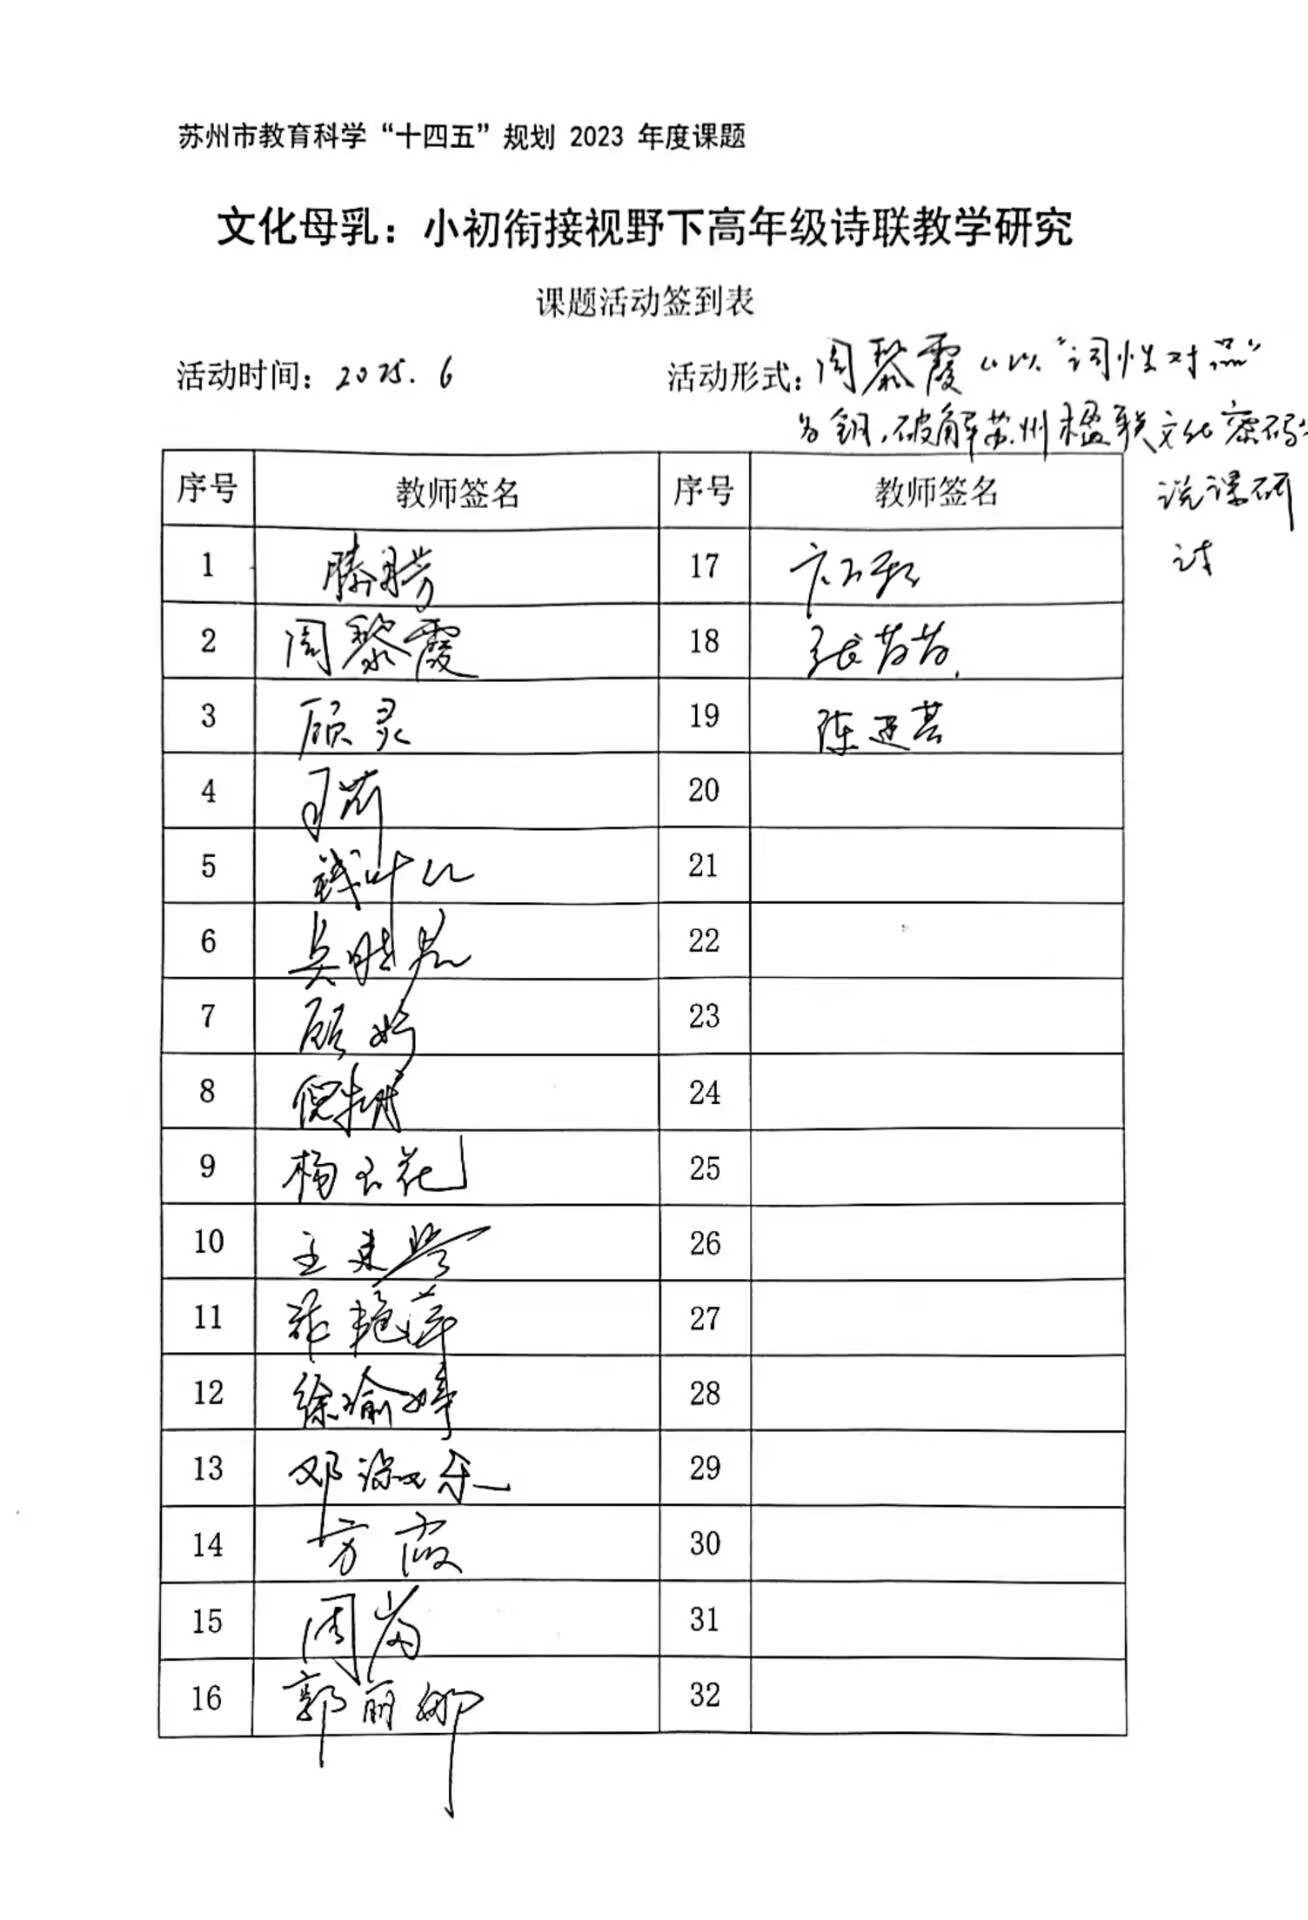 苏州市教育科学“十四五”规划 2023 年度课题
文化母乳：小初衔接视野下高年级诗联教学研究
课题活动签到表
活动时间：2025.6
活动形式：周黎霞“以“词性对品”
为钥,破解苏州楹联文化密码”
说课研
讨
序号 教师签名 序号 教师签名
1 17
2 周黎霞 18 张苗苗
3 顾灵 19
4 20
5 钱叶儿 21
6 22
7 顾婷 23
8 24
9 杨玉花 25
10 26
11 艳萍 27
12 徐瑜婷 28
13 邓 29
14 方霞 30
15 周 31
16 郭丽娜 32